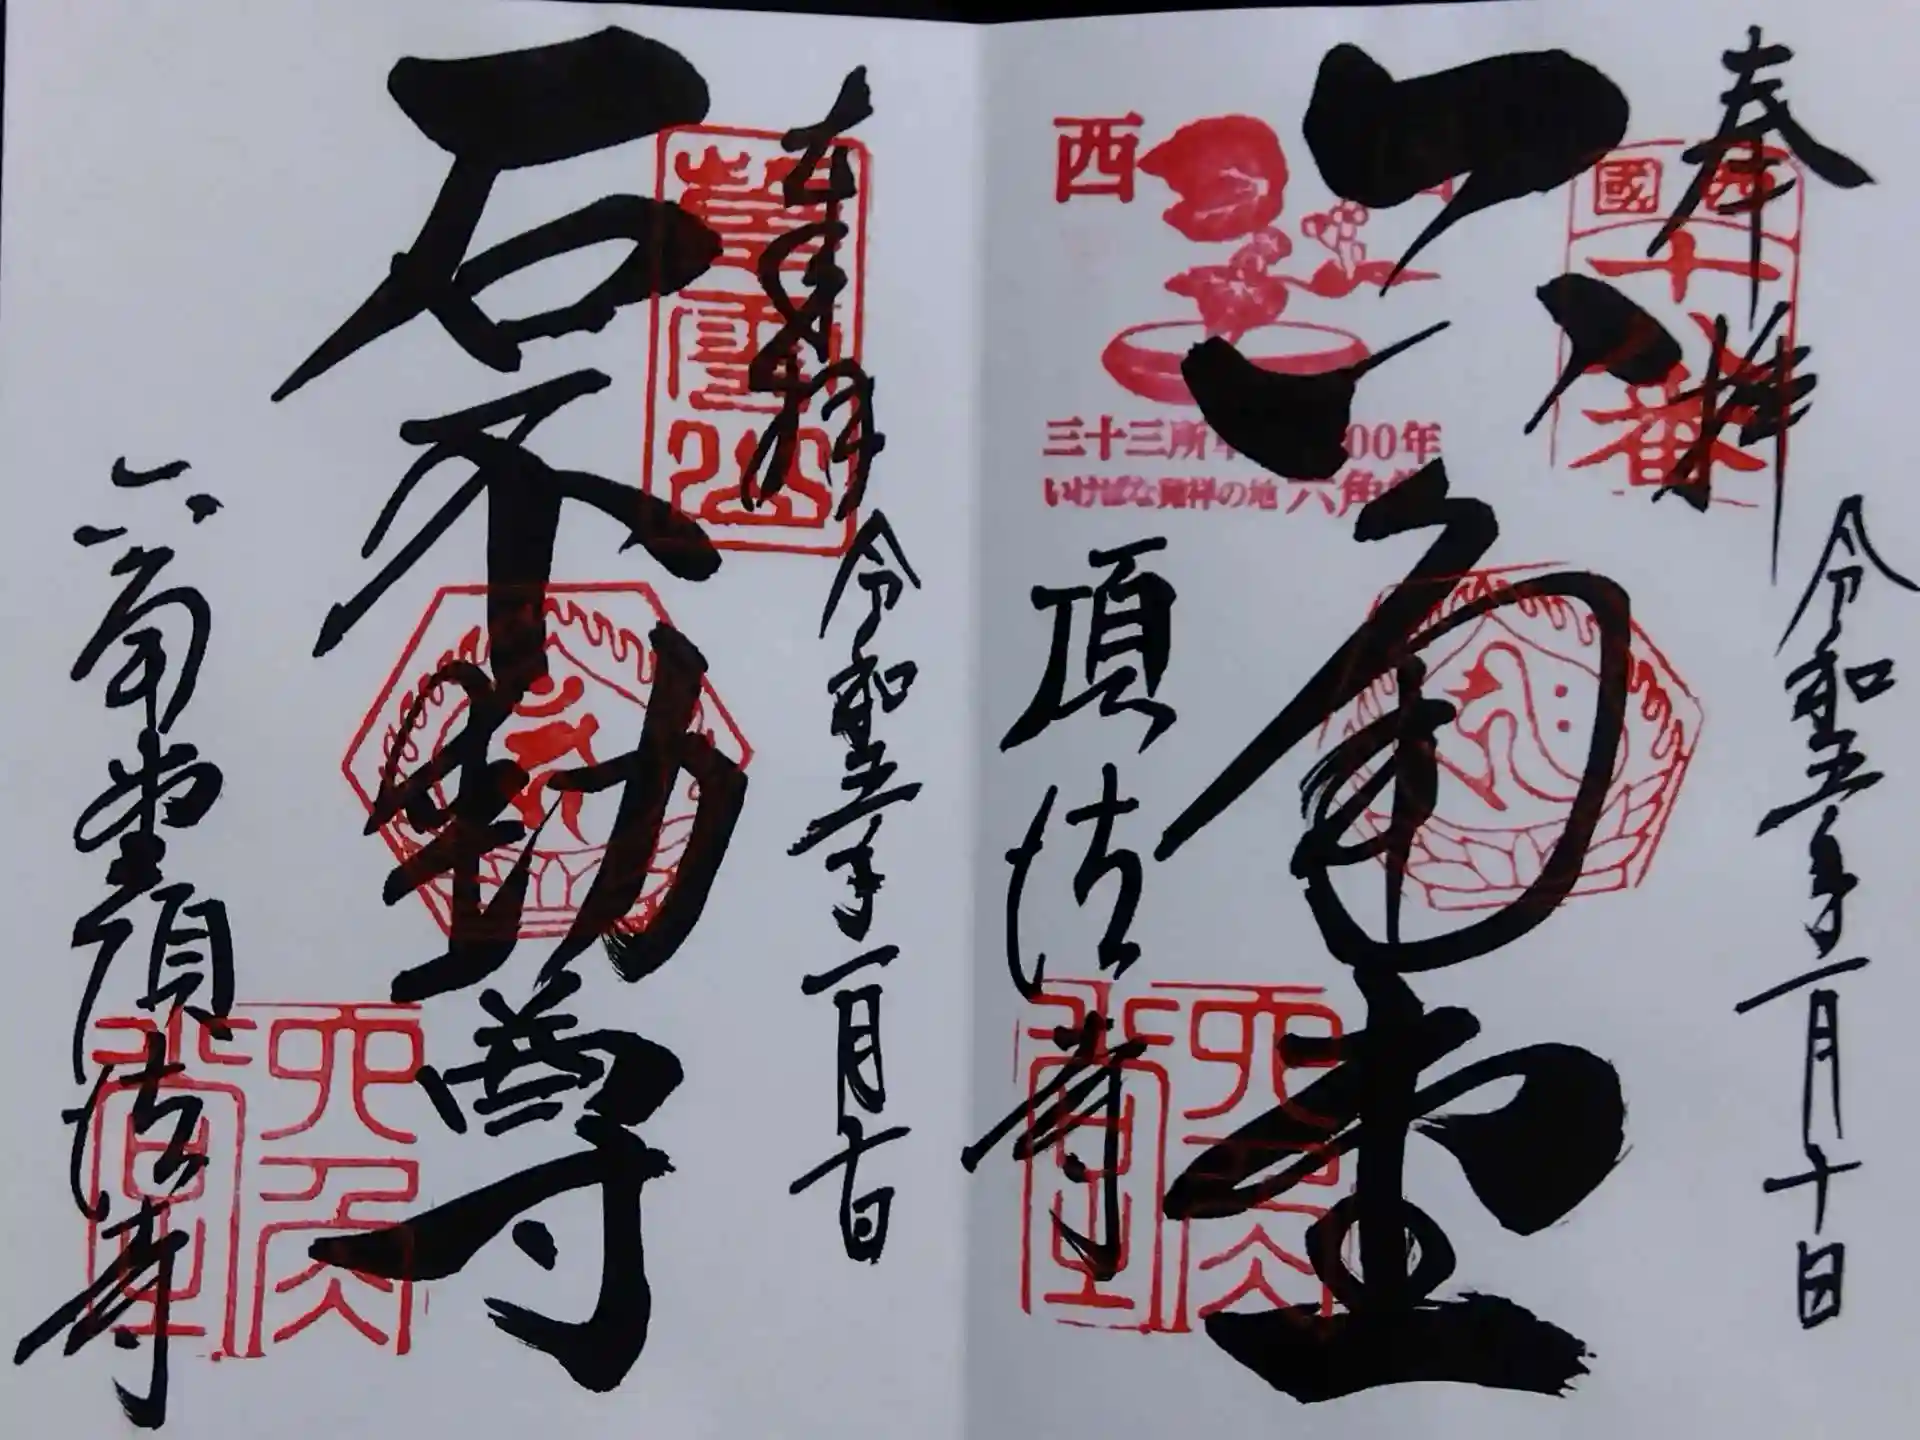 奉拝
令和五年一月十日
西國
十八番
六角堂
西
三十三所
00年
いけばな発祥の地 六角
頂法寺
六角堂
奉拝
令和五年一月十日
石不動尊
六角堂頂法寺
六角堂